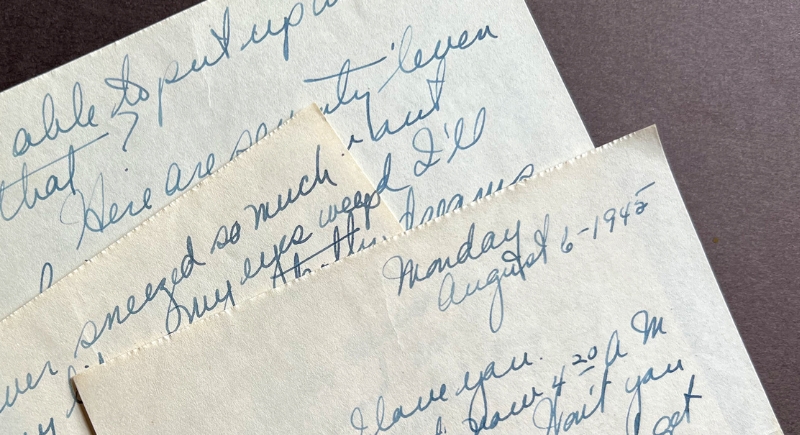 able to put up w
that ?
Here are seventy 'leven
want
I'll
dreams
sneezed so much
my eyes weeped
Monday
August 6-1945
I love you.
now 4 20 A M
Won't you
get